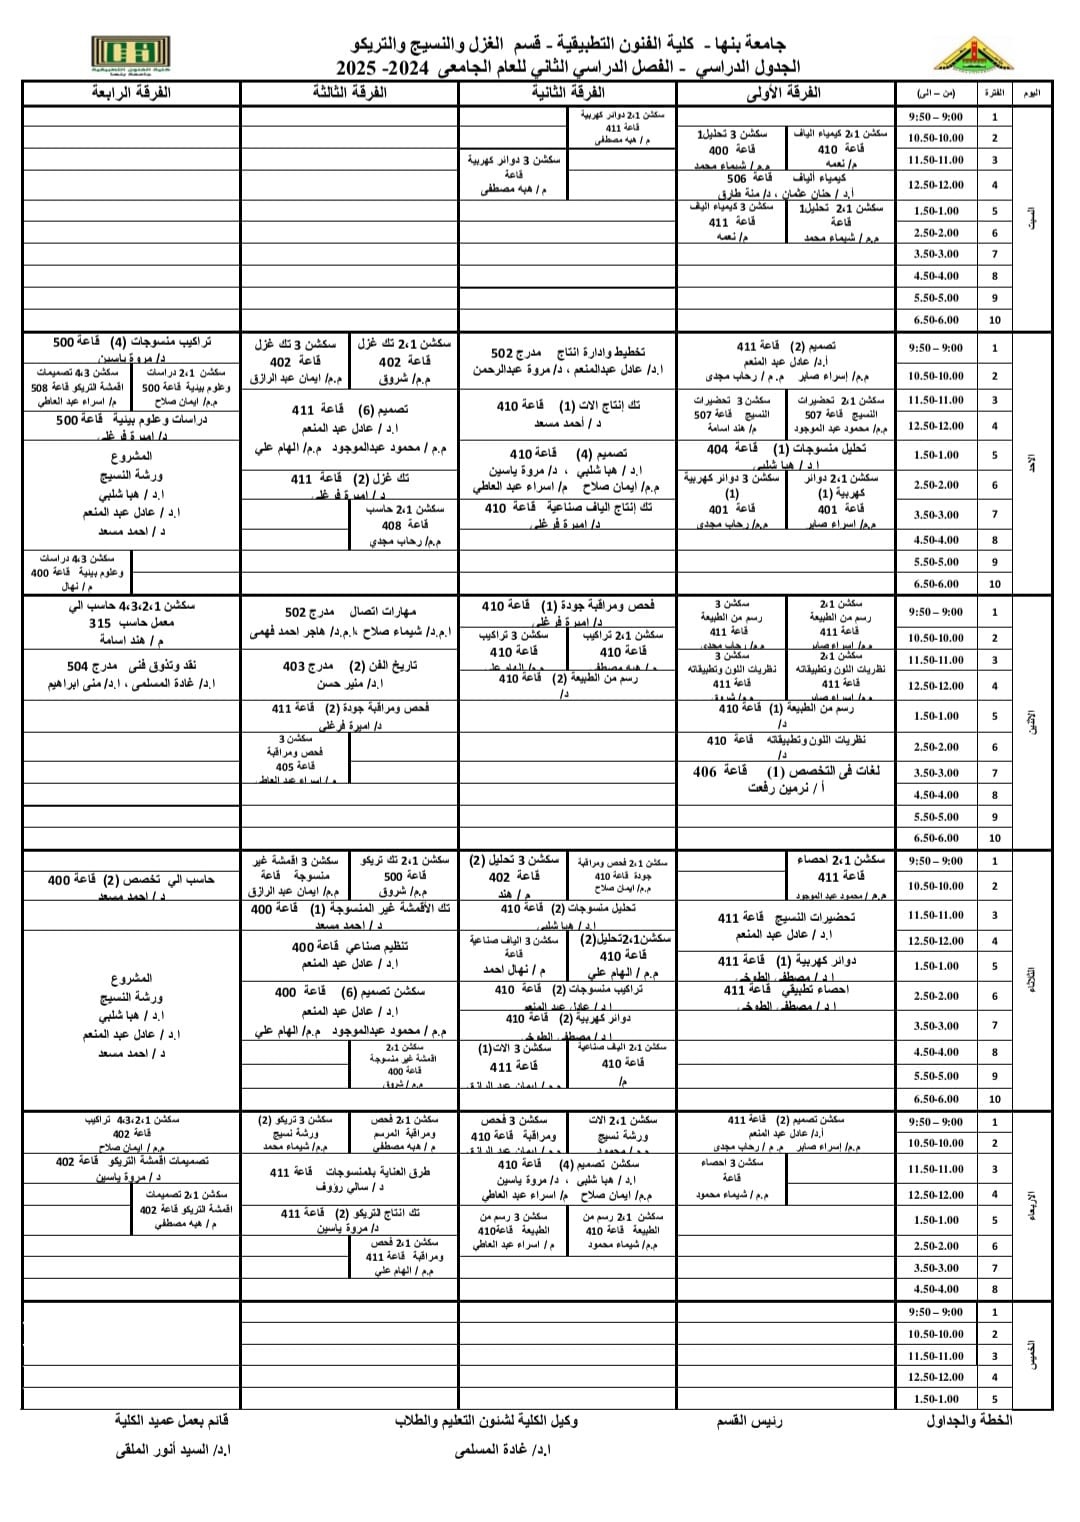 جامعة بنها - كلية الفنون التطبيقية - قسم الغزل والنسيج والتريكو
الجدول الدراسي - الفصل الدراسي الثاني للعام الجامعى 2024- 2025
اليوم الفترة (من – الى) الفرقة الأولى الفرقة الثانية الفرقة الثالثة الفرقة الرابعة
السبت
1 9:00 – 9:50
2 10.00-10.50
3 11.00-11.50
4 12.00-12.50
5 1.00-1.50
6 2.00-2.50
7 3.00-3.50
8 4.00-4.50
9 5.00-5.50
10 6.00-6.50
سكشن 2،1 كيمياء الياف
قاعة 410
م/ نعمه
سكشن 3 تحليل1
قاعة 400
م.م / شيماء محمد
كيمياء ألياف قاعة 506
أ.د / حنان عثمان ، د/ منة طارق
سكشن 2،1 تحليل1
قاعة
م.م / شيماء محمد
سكشن 3 كيمياء الياف
قاعة 411
م/ نعمه
سكشن 2،1 دوائر كهربية
قاعة 411
م / هبه مصطفى
سكشن 3 دوائر كهربية
قاعة
م/ هبه مصطفى
الاحد
1 9:00 – 9:50
2 10.00-10.50
3 11.00-11.50
4 12.00-12.50
5 1.00-1.50
6 2.00-2.50
7 3.00-3.50
8 4.00-4.50
9 5.00-5.50
10 6.00-6.50
تصميم (2) قاعة 411
أ.د/ عادل عبد المنعم
م.م/ إسراء صابر م.م / رحاب مجدى
سكشن 2،1 تحضيرات
النسيج قاعة 507
م.م/ محمود عبد الموجود
سكشن 3 تحضيرات
النسيج قاعة 507
م/ هند اسامة
تحليل منسوجات (1) قاعة 404
ا.د / هبا شلبي
سكشن 2،1 دوائر
كهربية (1)
قاعة 401
م.م/ إسراء صابر
سكشن 3 دوائر كهربية
(1)
قاعة 401
م.م/ رحاب مجدى
تخطيط وادارة انتاج مدرج 502
ا.د/ عادل عبدالمنعم ، د/ مروة عبدالرحمن
تك إنتاج الات (1) قاعة 410
د / أحمد مسعد
تصميم (4) قاعة 410
ا.د / هبا شلبي ، د/ مروة ياسين
م.م/ ايمان صلاح م/ اسراء عبد العاطي
تك إنتاج الياف صناعية قاعة 410
د/ اميرة فرغلي
سكشن 2،1 تك غزل
قاعة 402
م.م/ شروق
سكشن 3 تك غزل
قاعة 402
م.م/ ايمان عبد الرازق
تصميم (6) قاعة 411
ا.د / عادل عبد المنعم
م.م / محمود عبدالموجود م.م/ الهام علي
تك غزل (2) قاعة 411
د / اميرة فرغلي
سكشن 2،1 حاسب
قاعة 408
م.م/ رحاب مجدي
تراكيب منسوجات (4) قاعة 500
د/ مروة ياسين
سكشن 2،1 دراسات
وعلوم بينية قاعة 500
م.م/ ايمان صلاح
سكشن 4،3 تصميمات
اقمشة التريكو قاعة 508
م/ اسراء عبد العاطي
دراسات وعلوم بينية قاعة 500
د/ اميرة فرغلي
المشروع
ورشة النسيج
ا.د / هبا شلبي
ا.د / عادل عبد المنعم
د / احمد مسعد
سكشن 4،3 دراسات
وعلوم بينية قاعة 400
م / نهال
الاثنين
1 9:00 – 9:50
2 10.00-10.50
3 11.00-11.50
4 12.00-12.50
5 1.00-1.50
6 2.00-2.50
7 3.00-3.50
8 4.00-4.50
9 5.00-5.50
10 6.00-6.50
سكشن 2،1
رسم من الطبيعة
قاعة 411
م.م/ إسراء صابر
سكشن 3
رسم من الطبيعة
قاعة 411
م.م/ رحاب مجدى
سكشن 2،1
نظريات اللون وتطبيقاته
قاعة 411
م.م/ إسراء صابر
سكشن 3
نظريات اللون وتطبيقاته
قاعة 411
م.م/ شروق
رسم من الطبيعة (1) قاعة 410
د/
نظريات اللون وتطبيقاته قاعة 410
د/
لغات فى التخصص (1) قاعة 406
أ / نرمين رفعت
فحص ومراقبة جودة (1) قاعة 410
د/ اميرة فرغلي
سكشن 2،1 تراكيب
قاعة 410
م/ هبه مصطفى
سكشن 3 تراكيب
قاعة 410
م.م/ الهام علي
رسم من الطبيعة (2) قاعة 410
د/
مهارات اتصال مدرج 502
ا.م.د/ شيماء صلاح ،ا.م.د/ هاجر احمد فهمى
تاريخ الفن (2) مدرج 403
ا.د/ منير حسن
فحص ومراقبة جودة (2) قاعة 411
د/ اميرة فرغلي
سكشن 3
فحص ومراقبة
قاعة 405
م / إسراء عبد العاطي
سكشن 4،3،2،1 حاسب الي
معمل حاسب 315
م / هند اسامة
نقد وتذوق فنى مدرج 504
ا.د/ غادة المسلمى ، ا.د/ منى ابراهيم
الثلاثاء
1 9:00 – 9:50
2 10.00-10.50
3 11.00-11.50
4 12.00-12.50
5 1.00-1.50
6 2.00-2.50
7 3.00-3.50
8 4.00-4.50
9 5.00-5.50
10 6.00-6.50
سكشن 2،1 احصاء
قاعة 411
م.م / محمود عبد الموجود
تحضيرات النسيج قاعة 411
ا.د / عادل عبد المنعم
دوائر كهربية (1) قاعة 411
ا.د / مصطفى الطوخي
احصاء تطبيقي قاعة 411
ا.د / مصطفى الطوخي
سكشن 2،1 فحص ومراقبة
جودة قاعة 410
م.م/ ايمان صلاح
سكشن 3 تحليل (2)
قاعة 402
م / هند
تحليل منسوجات (2) قاعة 410
ا.د / هبا شلبي
سكشن2،1تحليل(2)
قاعة 410
م.م / الهام علي
سكشن 3 الياف صناعية
قاعة
م / نهال احمد
تراكيب منسوجات (2) قاعة 410
ا.د / عادل عبد المنعم
دوائر كهربية (2) قاعة 410
ا.د / مصطفى الطوخي
سكشن 2،1 الياف صناعية
قاعة 410
م/
سكشن 3 الات(1)
قاعة 411
م.م / إيمان عبد الرازق
سكشن 2،1 تك تريكو
قاعة 500
م.م/ شروق
سكشن 3 اقمشة غير
منسوجة قاعة
م.م/ ايمان عبد الرازق
تك الأقمشة غير المنسوجة (1) قاعة 400
د / احمد مسعد
تنظيم صناعي قاعة 400
ا.د / عادل عبد المنعم
سكشن تصميم (6) قاعة 400
ا.د / عادل عبد المنعم
م.م / محمود عبدالموجود م.م/ الهام علي
سكشن 2،1
اقمشة غير منسوجة
قاعة 400
م.م / شروق
حاسب الي تخصص (2) قاعة 400
د / احمد مسعد
المشروع
ورشة النسيج
ا.د / هبا شلبي
ا.د / عادل عبد المنعم
د / احمد مسعد
الاربعاء
1 9:00 – 9:50
2 10.00-10.50
3 11.00-11.50
4 12.00-12.50
5 1.00-1.50
6 2.00-2.50
7 3.00-3.50
8 4.00-4.50
سكشن تصميم (2) قاعة 411
أ.د/ عادل عبد المنعم
م.م/ إسراء صابر م.م / رحاب مجدى
سكشن 3 احصاء
قاعة
م.م / شيماء محمود
سكشن 2،1 الات
ورشة نسيج
م.م / محمود
سكشن 3 فحص
ومراقبة قاعة 410
م.م / إيمان عبد الرازق
سكشن تصميم (4) قاعة 410
ا.د / هبا شلبي ، د/ مروة ياسين
م.م/ ايمان صلاح م/ اسراء عبد العاطي
سكشن 2،1 رسم من
الطبيعة قاعة 410
م.م/ شيماء محمود
سكشن 3 رسم من
الطبيعة قاعة410
م / اسراء عبد العاطي
سكشن 2،1 فحص
ومراقبة المرسم
م / هبه مصطفي
سكشن 3 تريكو (2)
ورشة نسيج
م.م/ شيماء محمد
طرق العناية بالمنسوجات قاعة 411
د / سالي رؤوف
تك انتاج التريكو (2) قاعة 411
د/ مروة ياسين
سكشن 2،1 فحص
ومراقبة قاعة 411
م.م / الهام علي
سكشن 4،3،2،1 تراكيب
قاعة 402
م.م / إيمان صلاح
تصميمات اقمشة التريكو قاعة 402
د / مروة ياسين
سكشن 2،1 تصميمات
اقمشة التريكو قاعة 402
م / هبه مصطفي
الخميس
1 9:00 – 9:50
2 10.00-10.50
3 11.00-11.50
4 12.00-12.50
5 1.00-1.50
الخطة والجداول رئيس القسم وكيل الكلية لشئون التعليم والطلاب قائم بعمل عميد الكلية
ا.د/ غادة المسلمى ا.د/ السيد أنور الملقى